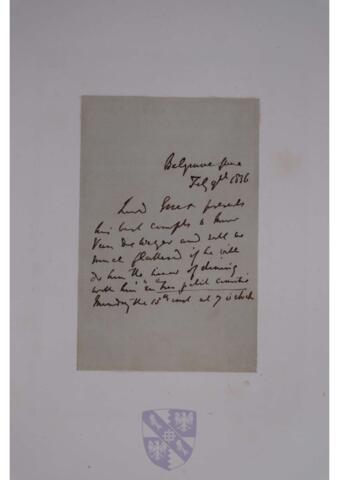 Belgrave
Feb 9th 1836
Lord presents
his best compts to
Van de Weyer and will be
much flattered if he will
do him the honor of dining
with him "en petit comité"
the 15th at 7 o'clock